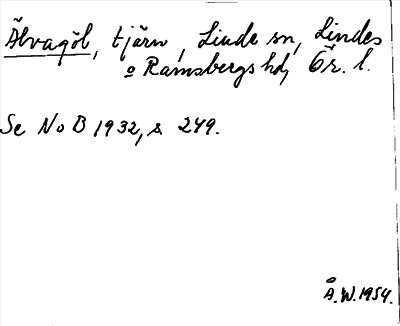 Älvagöl, tjärn, Linde sn, Lindes
o Ramsbergs hd, Ör. l.
Se NoB 1932, s 249.
Å.W.1954.